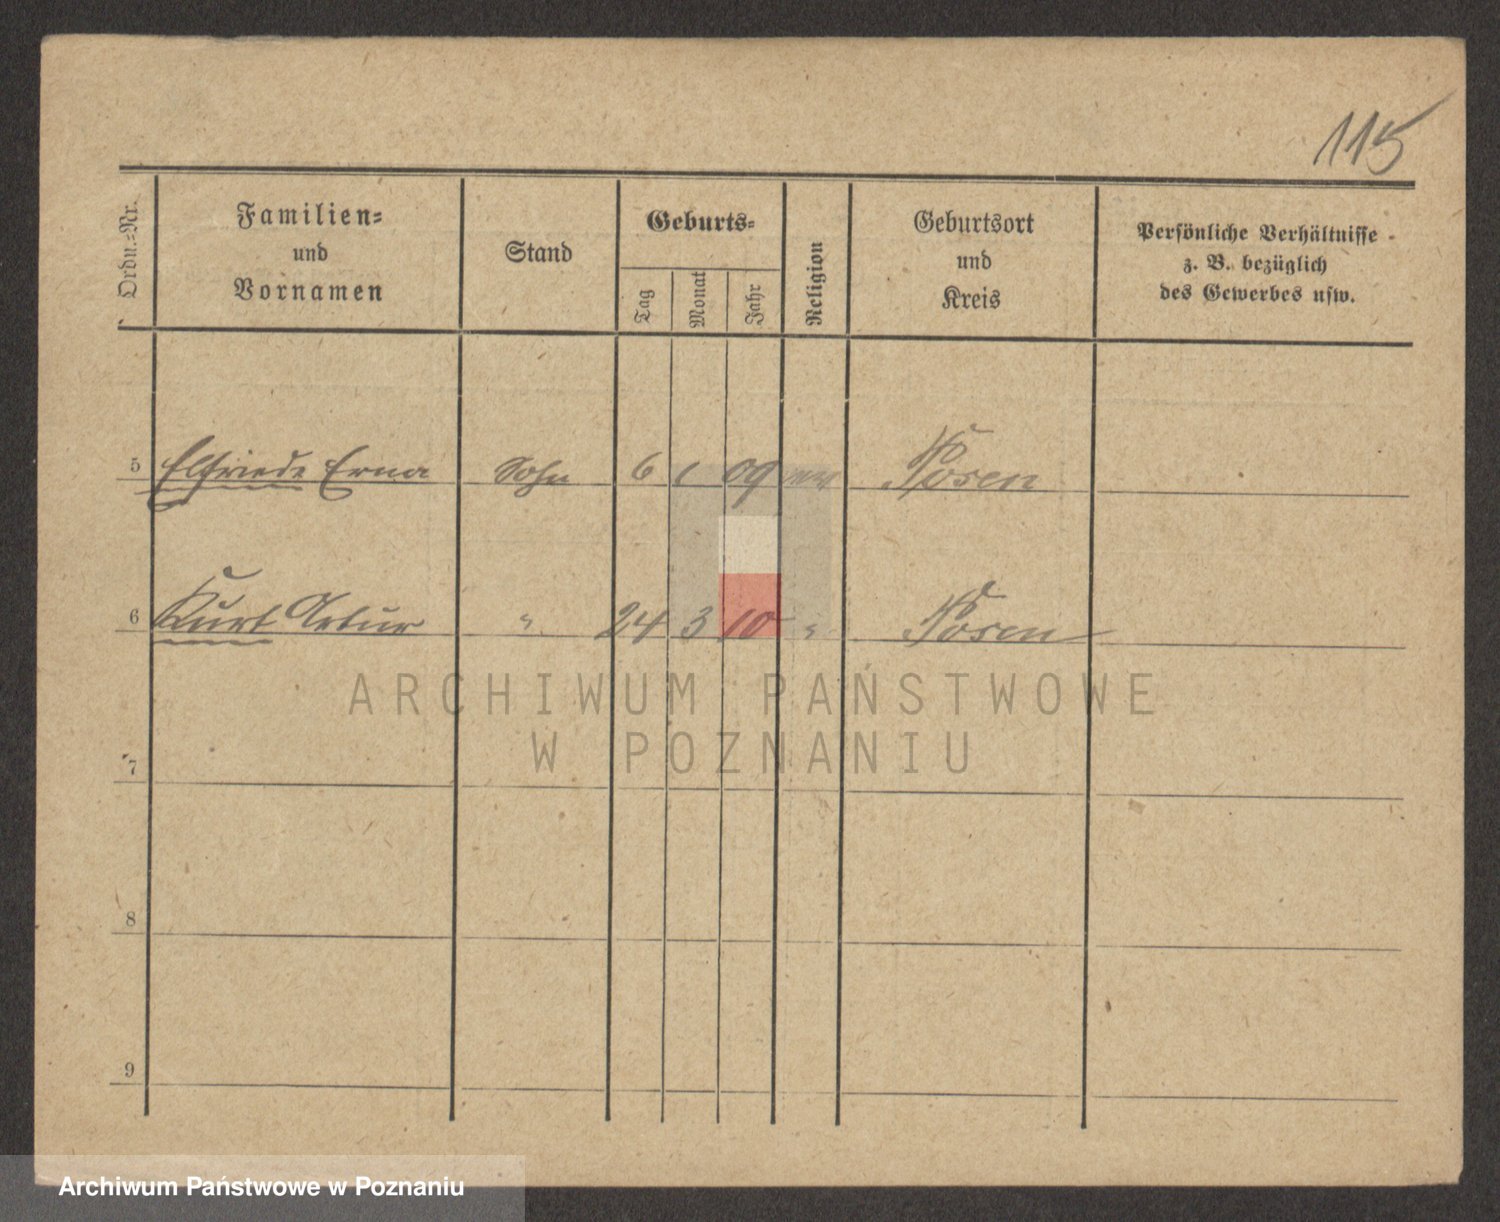 115
Ordn.-Nr.
Familien-
und
Vornamen
Stand
Geburts-
Tag
Monat
Jahr
Religion
Geburtsort
und
Kreis
Persönliche Verhältnisse
z. B. bezüglich
des Gewerbes usw.
5 Elfriede Erna Sohn 6 1 09 Posen
6 Kurt Artur " 24 3 10 " Posen
ARCHIWUM PAŃSTWOWE
W POZNANIU
7
8
9
Archiwum Państwowe w Poznaniu